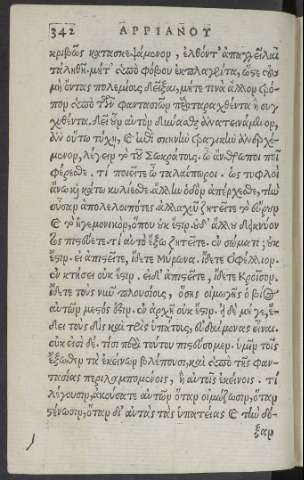 342 ΑΡΡΙΑΝΟΥ
κριβῶς κατασκεψάμενον, ἐλθόντ' ἀπαγγεῖλαι
τἀληθῆ. μήτ' ὑπὸ φόβου ἐκπλαγέντα, ὥστε τοὺς
μὴ ὄντας πολεμίους δεῖξαι, μήτε τινὰ ἄλλον τρό-
πον ὑπὸ τῶν φαντασιῶν παραταραχθέντα ἢ συγ-
χυθέντα. δεῖ οὖν αὐτὸν δύνασθαι ἀνατεινάμενον,
ἂν οὕτω τύχῃ, καὶ ἐπὶ σκηνὴν τραγικὴν ἀνερχό-
μενον, λέγειν τὸ τοῦ Σωκράτους. ὦ ἄνθρωποι ποῖ
φέρεσθε. τί ποιεῖτε ὦ ταλαίπωροι. ὡς τυφλοὶ
ἄνω καὶ κάτω κυλίεσθε. ἄλλην ὁδὸν ἀπέρχεσθε, τὴν
οὖσαν ἀπολελοιπότες. ἀλλαχοῦ ζητεῖτε τὸ εὔρουν
καὶ τὸ ἡγεμονικὸν, ὅπου οὐκ ἔστιν. οὐδ' ἄλλου δεικνύον
τος πιστεύετε. τί αὐτὸ ἔξω ζητεῖτε. ἐν σώματι; οὐκ
ἔστιν. εἰ ἀπιστεῖτε, ἴδετε Μύρωνα. ἴδετε Ὀφέλλιον.
ἐν κτήσει οὐκ ἔστιν. εἰ δ' ἀπιστεῖτε, ἴδετε Κροῖσον.
ἴδετε τοὺς νῦν πλουσίους, ὅσης οἰμωγῆς ὁ βίος
αὐτῶν μεστός ἐστιν. ἐν ἀρχῇ οὐκ ἔστιν. εἰ δὲ μή γε, ἔ-
δει τοὺς δὶς καὶ τρὶς ὑπάτους, εὐδαίμονας εἶναι.
οὐκ εἰσὶ δέ. τίσι περὶ τούτου πιστεύσομεν. ὑμῖν τοῖς
ἔξωθεν τὰ ἐκείνων βλέπουσι, καὶ ὑπὸ τῆς φαν-
τασίας περιλαμπομένοις, ἢ αὐτοῖς ἐκείνοις. τί
λέγουσιν; ἀκούσατε αὐτῶν ὅταν οἰμώζωσιν, ὅταν
στένωσιν, ὅταν δι' αὐτὰς τὰς ὑπατείας καὶ τὴν δό-
ξαν